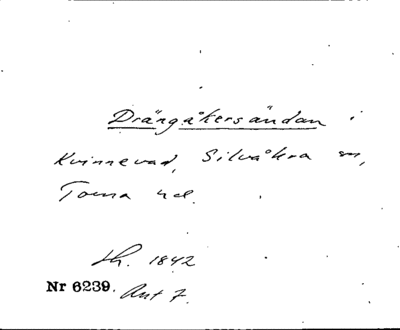 Drängåkersändan i
Kvinnevad, Silvåkra sn,
Torna hd.
Lh. 1842
Nr 6239. Ant 7.